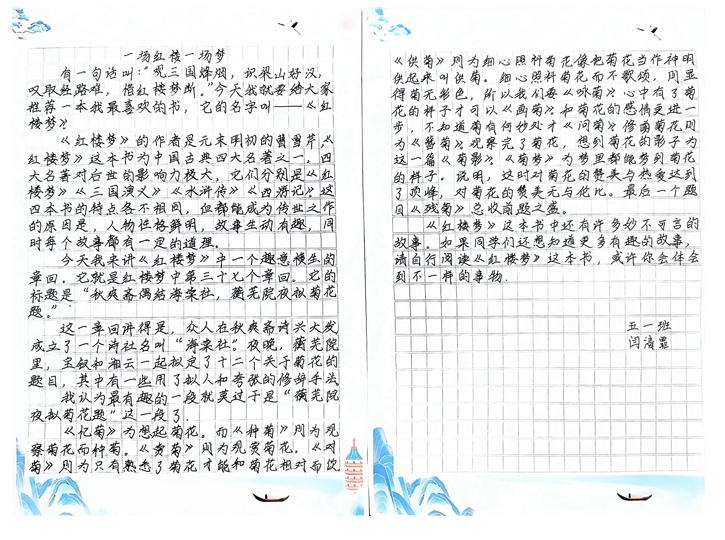 一场红楼一场梦
有一句话叫:“观三国烽烟,识梁山好汉,
叹取经路难,惜红楼梦断。”今天我就要给大家
推荐一本我最喜欢的书,它的名字叫——《红
楼梦》。
《红楼梦》的作者是元末明初的曹雪芹,《
红楼梦》这本书为中国古典四大名著之一。四
大名著对后世的影响力极大,它们分别是《红
楼梦》《三国演义》《水浒传》《西游记》。这
四本书的特点各不相同,但都能成为传世之作
的原因是,人物性格鲜明,故事生动有趣,同
时每个故事都有一定的道理。
今天我来讲《红楼梦》中一个趣意横生的
章回。它就是红楼梦中第三十七个章回。它的
标题是“秋爽斋偶结海棠社,蘅芜院夜拟菊花
题。”
这一章回讲得是,众人在秋爽斋诗兴大发
成立了一个诗社名叫“海棠社”。夜晚,蘅芜院
里,宝钗和湘云一起拟定了十二个关于菊花的
题目,其中有一些用了拟人和夸张的修辞手法
我认为最有趣的一段就莫过于是“蘅芜院
夜拟菊花题”这一段了.
《忆菊》为想起菊花。而《种菊》则为观
察菊花而种菊。《赏菊》则为观赏菊花。《对
菊》则为只有熟悉了菊花才能和菊花相对而饮
《供菊》则为细心照料菊花像把菊花当作神明
供起来叫供菊。细心照料菊花而不歌颂,则显
得菊无彩色,所以我们要《咏菊》。心中有了菊
花的样子才可以《画菊》。和菊花的感情更进一
步,不知道菊有何妙处才《问菊》。修剪菊花则
为《簪菊》。观察完了菊花,想到菊花的影子为
这一篇《菊影》。《菊梦》为梦里都能梦到菊花
的样子。说明,这时对菊花的赞美与热爱达到
了顶峰,对菊花的赞美无与伦比。最后一个题
目《残菊》总收前题之盛。
《红楼梦》这本书中还有许多妙不可言的
故事。如果同学们还想知道更多有趣的故事,
请自行阅读《红楼梦》这本书,或许你会体会
到不一样的事物.
五一班
闫清